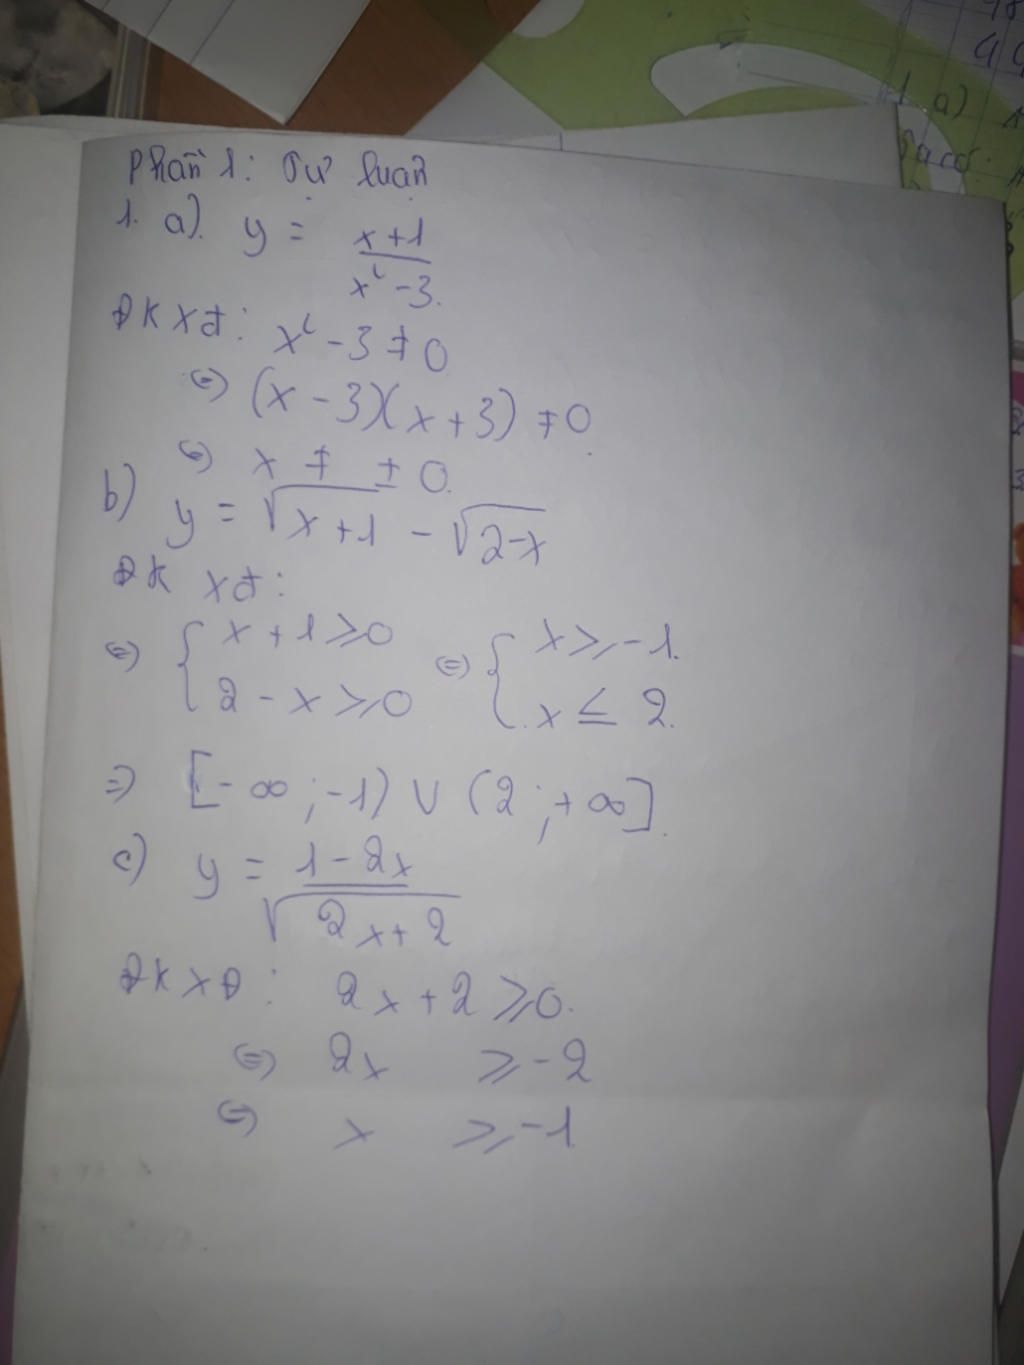 Phần 1: Tự luận
1. a). y = x+1 / x² - 3.
ĐK xđ: x² - 3 ≠ 0
⇔ (x - 3)(x + 3) ≠ 0.
⇔ x ≠ ± 0.
b) y = √x+1 - √2-x
ĐK xđ:
⇔ { x + 1 ⩾ 0 ⇔ { x ⩾ -1.
2 - x ⩾ 0 x ≤ 2.
⇒ [-∞; -1) ∪ (2; +∞].
c) y = 1 - 2x / √2x + 2
ĐKXĐ: 2x + 2 ⩾ 0.
⇔ 2x ⩾ -2
⇔ x ⩾ -1
a)